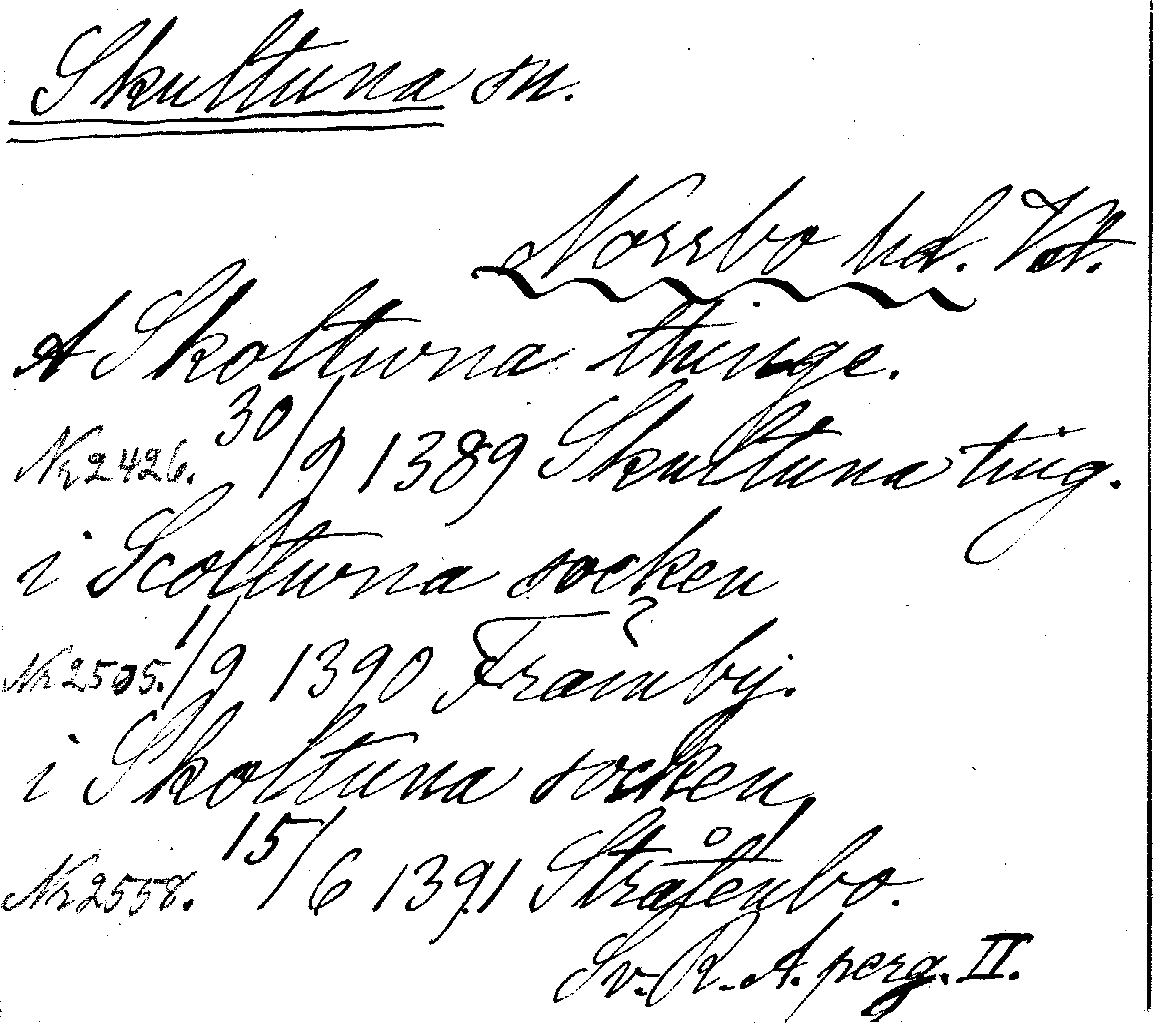 Skultuna sn.
Norrbo hd. Vstm.
A Skoltuna thinge.
Nr 2426. 30/9 1389 Skultuna ting.
i Scoltuna socken
Nr 2505. 1/9 1390 Främby?.
i Skoltuna socken,
Nr 2558. 15/6 1391 Stråtenbo.
Sv. R. A. perg. II.